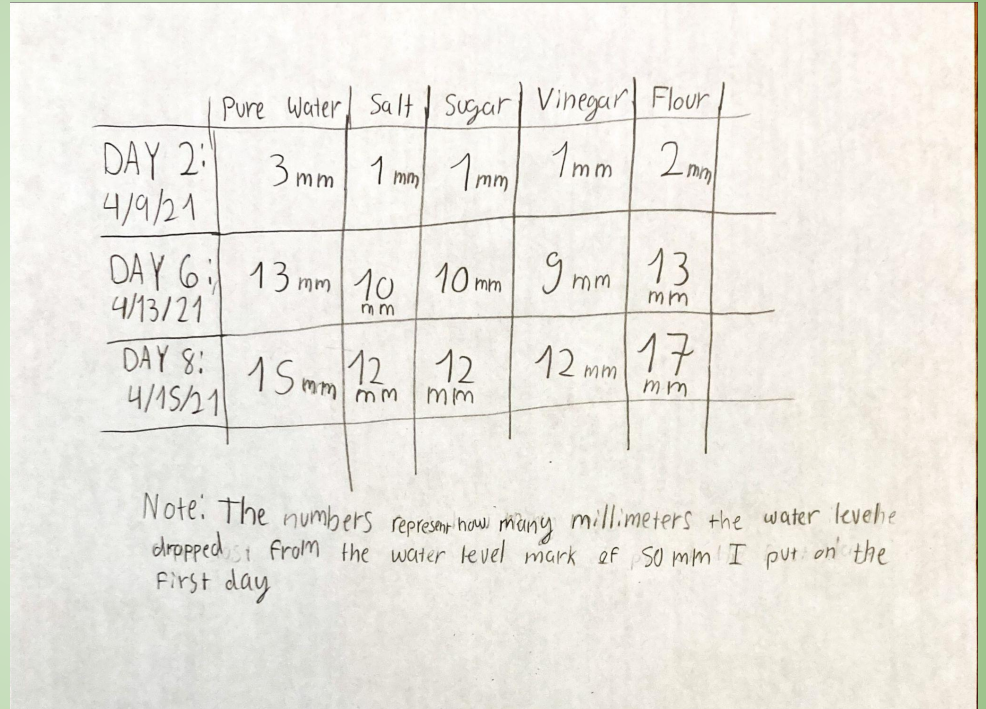 Pure Water Salt Sugar Vinegar Flour
DAY 2: 3 mm 1 mm 1 mm 1 mm 2 mm
4/9/21
DAY 6: 13 mm 10 mm 10 mm 9 mm 13 mm
4/13/21
DAY 8: 15 mm 12 mm 12 mm 12 mm 17 mm
4/15/21
Note: The numbers represent how many millimeters the water
dropped from the water level mark of 50 mm I put on the
first day